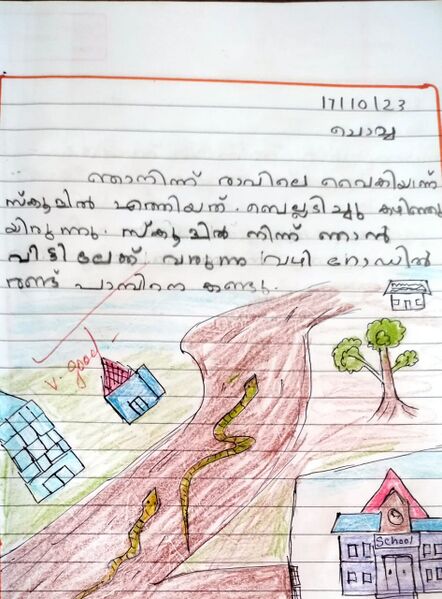 17/10/23
ചൊവ്വ
ഞാനിന്ന് രാവിലെ വൈകിയാണ്
സ്കൂളിൽ എത്തിയത്. ബെല്ലടിച്ചു കഴിഞ്ഞു
യിരുന്നു. സ്കൂളിൽ നിന്ന് ഞാൻ
വീട്ടിലേക്ക് വരുന്ന വഴി റോഡിൽ
രണ്ട് പാമ്പിനെ കണ്ടു.
v. good
School